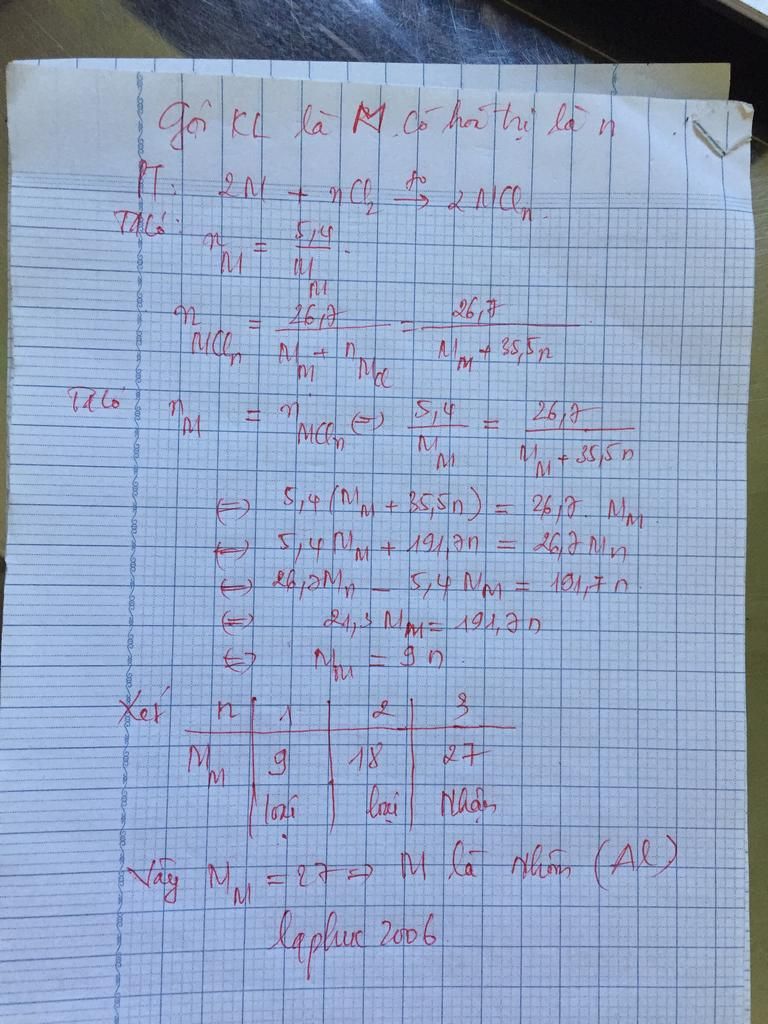 Gọi KL là M có hoá trị là n
PT: 2M + nCl₂ →(t°) 2MCln.
Ta có: n_M = 5,4/M_M.
n_MCln = 26,7/(M_M + n_MCl) = 26,7/(M_M + 35,5n)
Ta có n_M = n_MCln ⇔ 5,4/M_M = 26,7/(M_M + 35,5n)
⇔ 5,4(M_M + 35,5n) = 26,7. M_M
⇔ 5,4M_M + 191,7n = 26,7M_n
⇔ 26,7M_n - 5,4M_M = 191,7n.
⇔ 21,3M_M = 191,7n
⇔ M_M = 9n.
Xét n | 1 | 2 | 3
M_M | 9 | 18 | 27
loại | loại | Nhận
Vậy M_M = 27 ⇒ M là Nhôm (Al)
lqphuc2006